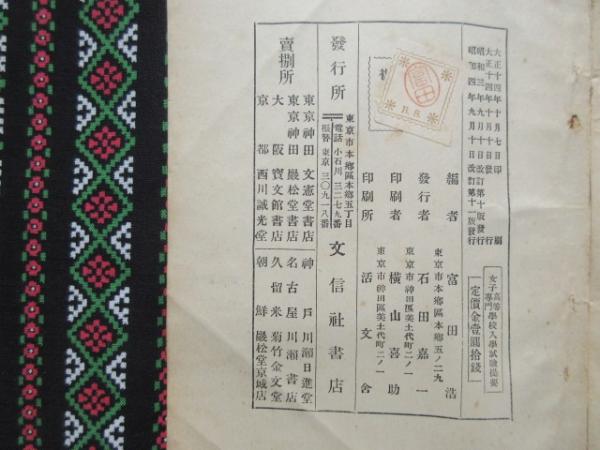 大正十四年十月七日印刷
大正十四年十月十日發行
昭和三年九月十日改訂第十版發行
昭和四年九月十日改訂第十一版發行
女子高等專門學校入學試驗提要
定價金壹圓拾錢
編者 富田浩
東京市本鄉區本鄉五ノ二九
發行者 石田嘉一
東京市神田區美土代町二ノ一
印刷者 橫山喜助
東京市神田區美土代町二ノ一
印刷所 活文舍
富田
東京市本鄉區本鄉五丁目
發行所 文信社書店
電話小石川三二七九番
振替東京三〇九一八番
賣捌所
東京神田 文憲堂書店
東京神田 巖松堂書店
大阪 寶文館書店
京都 西川誠光堂
神戶 川瀨日進堂
名古屋 川瀨書店
久留米 菊竹金文堂
朝鮮 巖松堂京城店